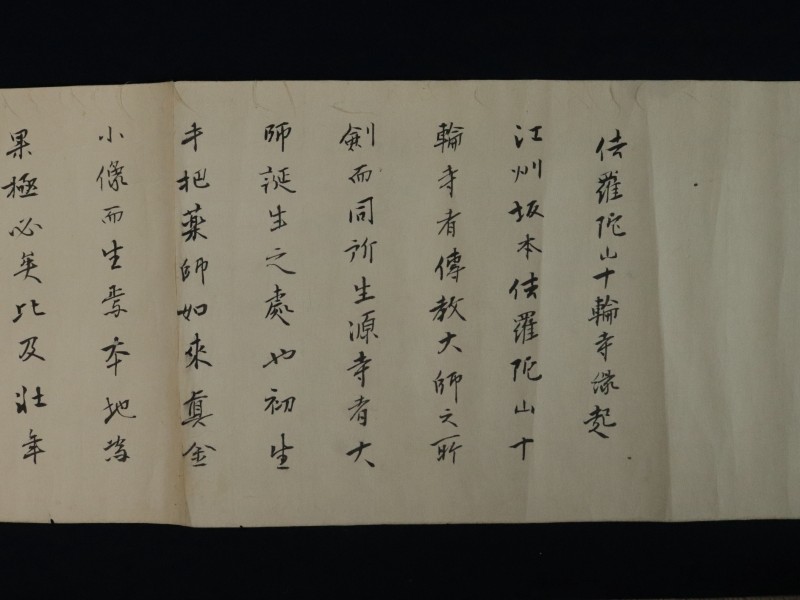 佉羅陀山十輪寺縁起
江州坂本佉羅陀山十
輪寺者傳教大師之所
剣而同所生源寺者大
師誕生之處也初生
手把薬師如来眞金
小像而生焉本地
果極必矣比及壮年